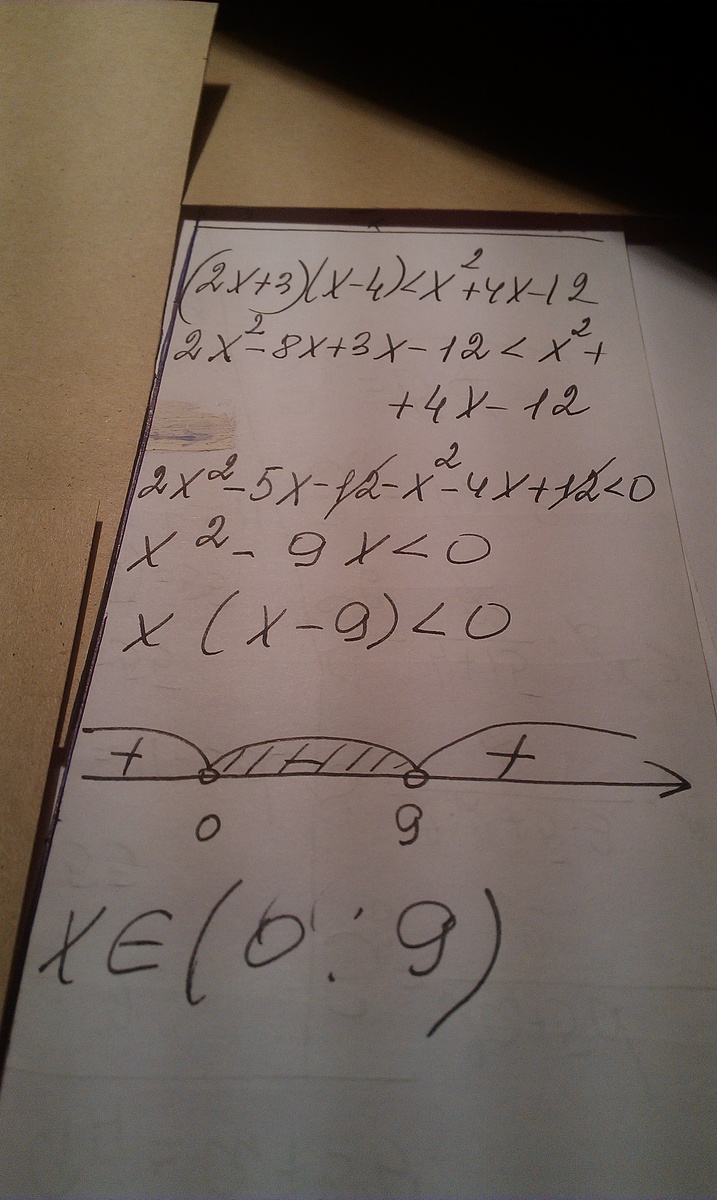 (2x+3)(x-4)<x²+4x-12
2x²-8x+3x-12<x²+
+4x-12
2x²-5x-12-x²-4x+12<0
x²-9x<0
x(x-9)<0
+ - +
0 9
x∈(0;9)